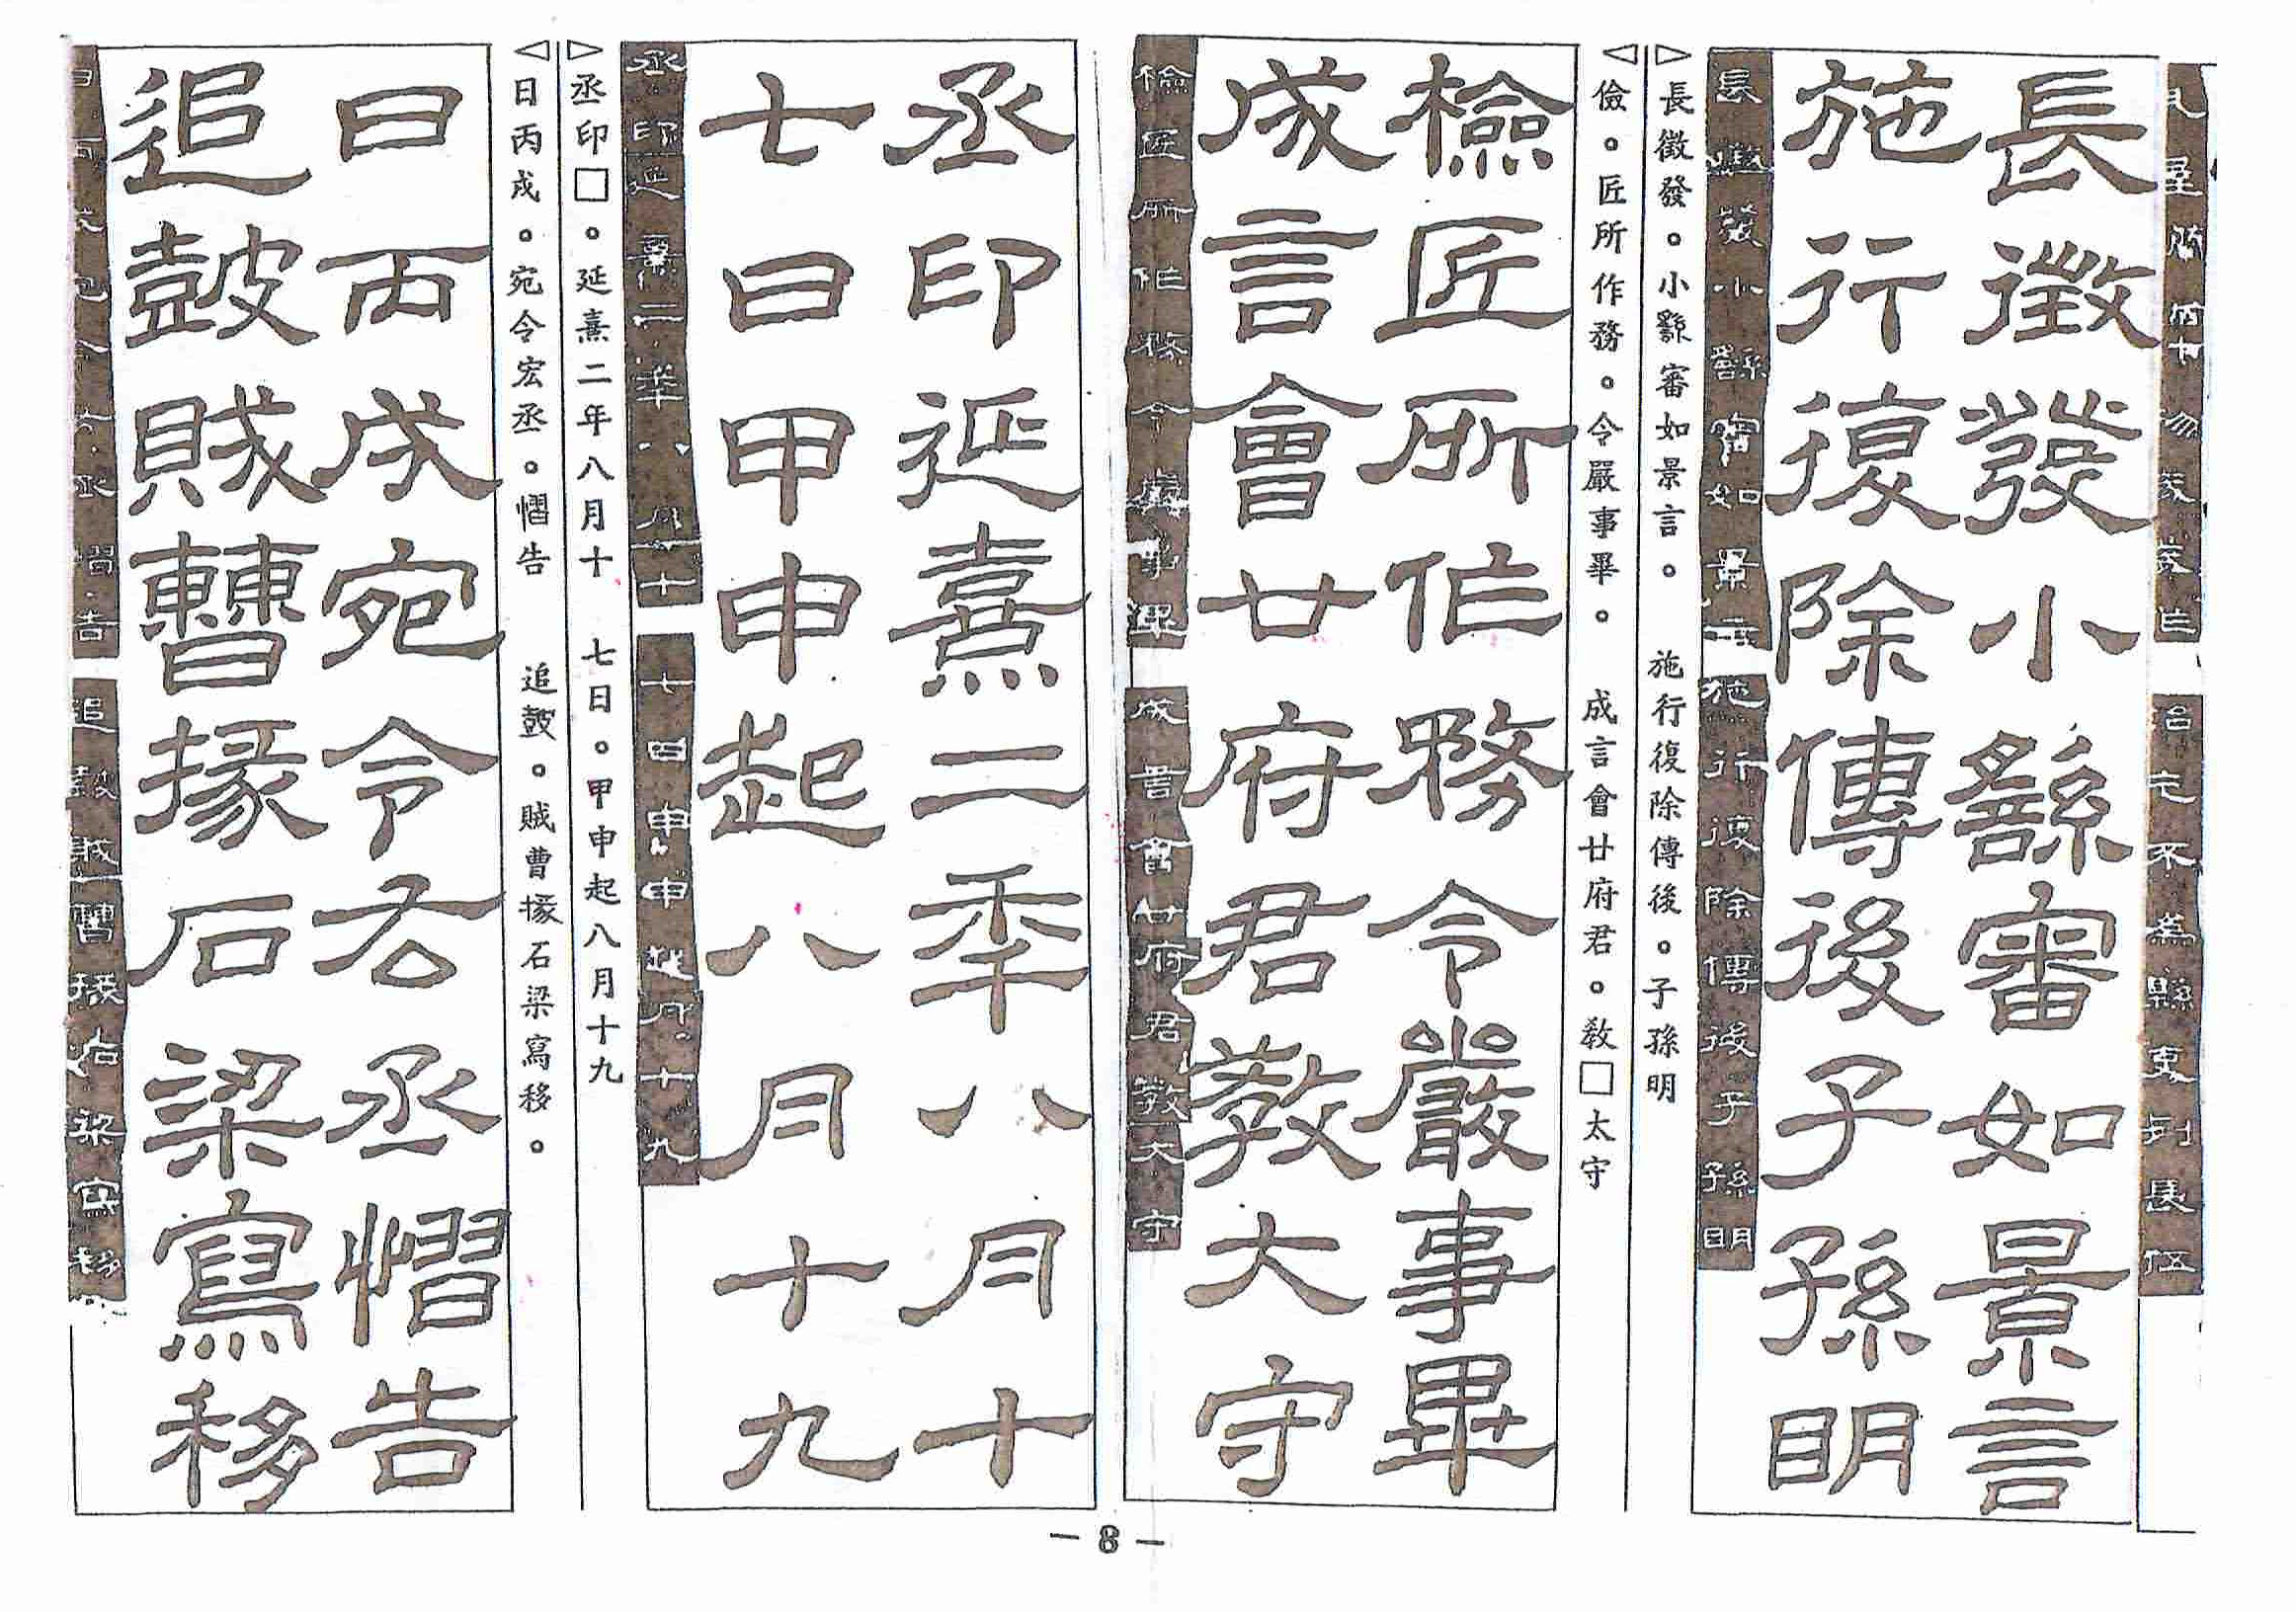 長徵發小繇審如景言
施行復除傳後子孫明
▷長徵發。小繇審如景言。　施行復除傳後。子孫明
◁儉。匠所作務。令嚴事畢。　成言會廿府君。教□太守
檢匠所作務令嚴事畢
成言會廿府君教大守
丞印延熹二年八月十
七日甲申起八月十九
▷丞印□。延熹二年八月十　七日。甲申起八月十九
◁日丙戌。宛令宏丞。慴告　追鼓。賊曹掾石梁寫移。
日丙戌宛令右丞慴告
追鼓賊曹掾石梁寫移
— 8 —